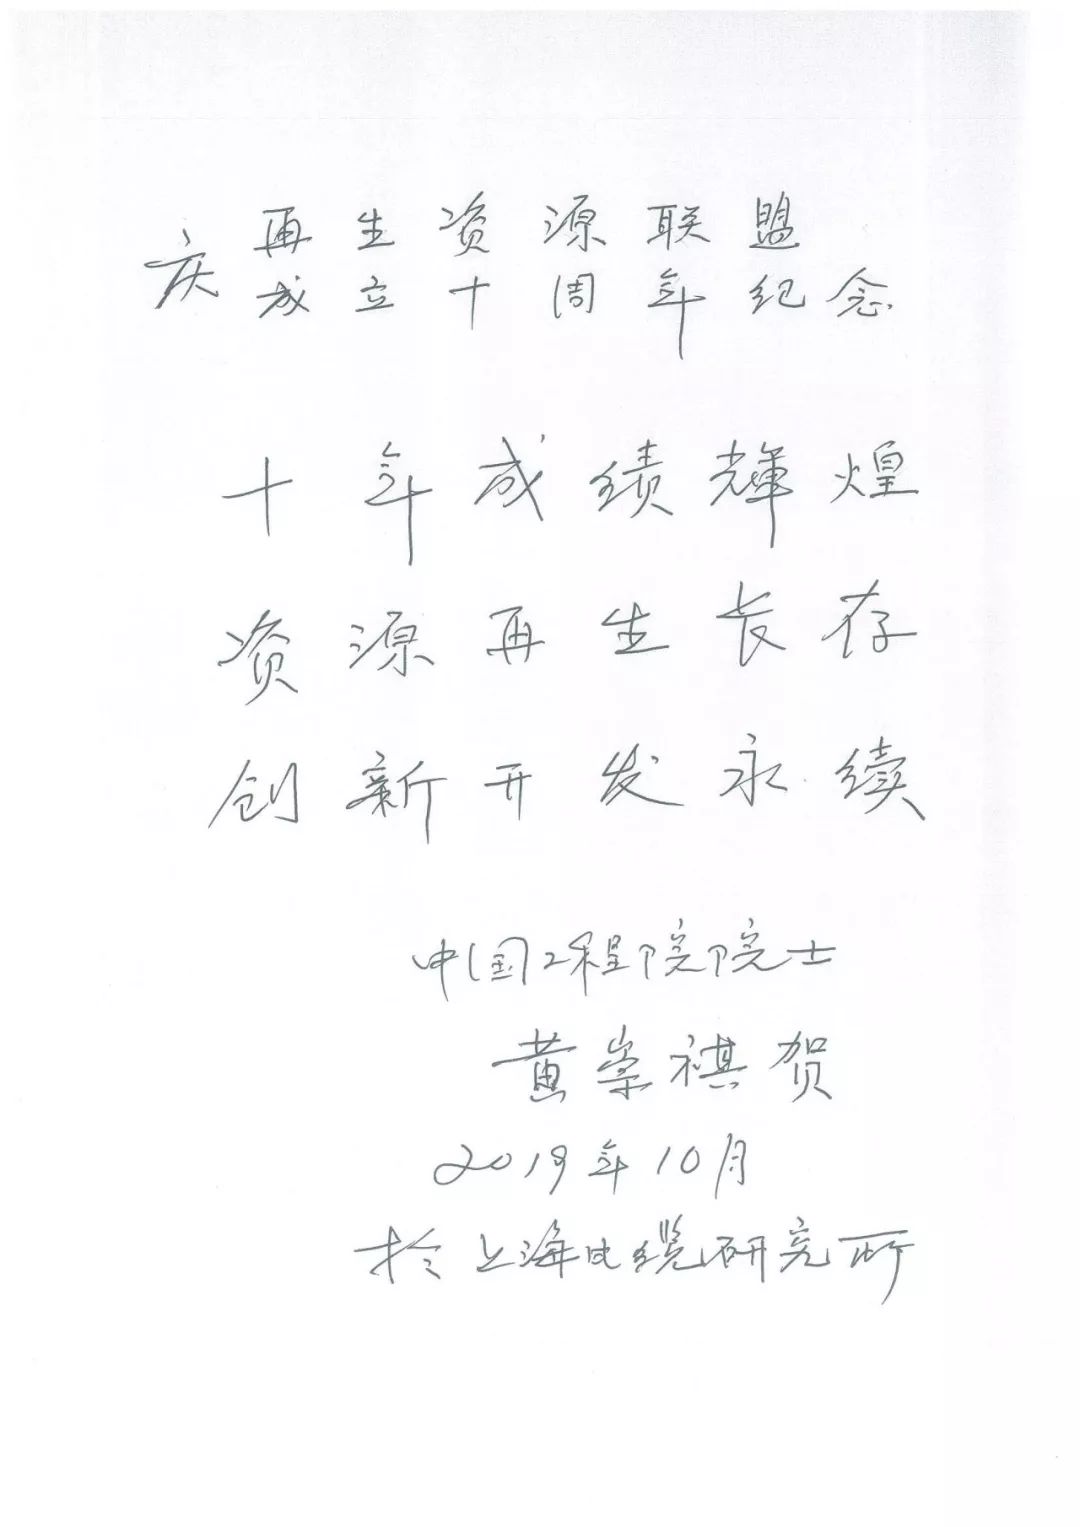 庆再生资源联盟
成立十周年纪念
十年成绩辉煌
资源再生长存
创新开发永续
中国工程院院士
黄崇祺贺
2019年10月
於上海电缆研究所